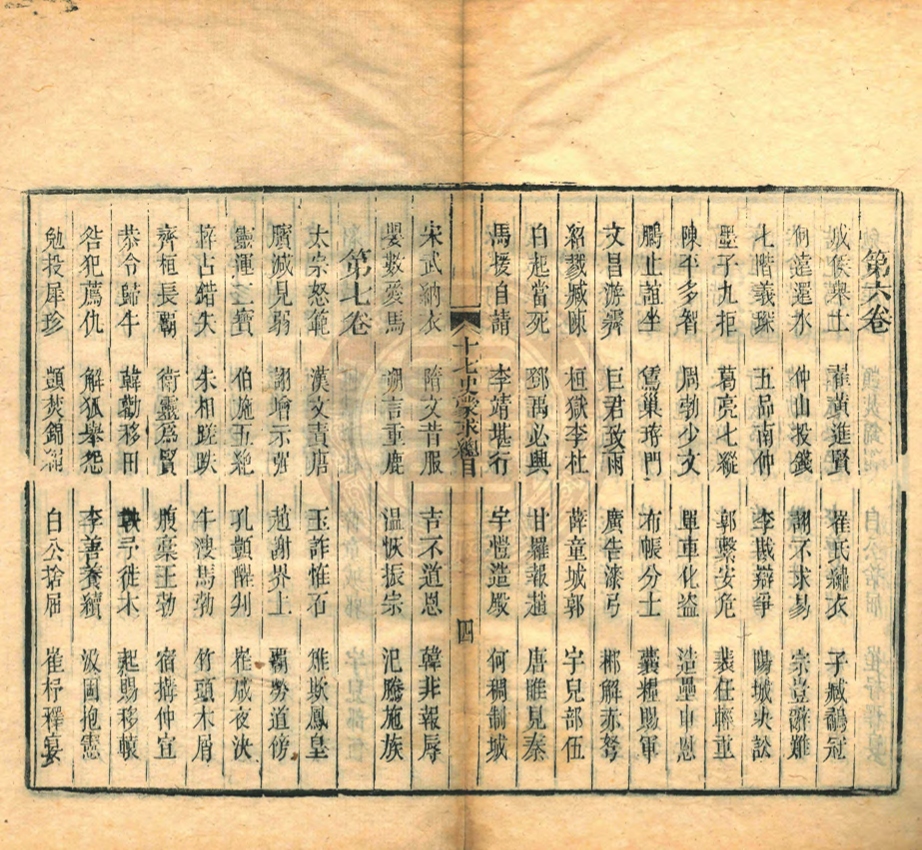 第六卷
成侯舉士 翟黃進賢 崔氏繡衣 子臧鷸冠
何遠還水 仲山投錢 翃不求易 宗豈辭難
七階義琛 五品南仲 李戡辯爭 陽城決訟
墨子九拒 葛亮七縱 郭繫安危 裴任輕重
陳平多智 周勃少文 單車化盜 造墨申恩
鵬止誼坐 巢琦門 布帳分士 囊糧賜軍
文昌游霽 巨君致雨 廣告漆弓 郴解赤弩
貂戮臧陳 桓獄李杜 薛童城郭 宇兒部伍
白起當死 鄧禹必興 甘羅報趙 唐雎見秦
馬援自請 李靖堪行 宇愷造殿 何稠制城
十七史蒙求總目 四
宋武納衣 隋文昔服 吉不道恩 韓非報辱
嬰數愛馬 朔言重鹿 温恢振宗 氾騰施族
第七卷
太宗怒範 漢文責唐 玉詐惟石 雉欺鳳皇
臏滅見弱 詡增示彊 趙謝界上 霸勞道傍
靈運二寶 伯施五絕 孔顗醒判 崔戎夜決
占錯失 朱相蹉跌 牛溲馬勃 竹頭木屑
齊桓長霸 衛靈爲賢 腹稾王勃 宿搆仲宣
恭令歸牛 韓勸移田 鞅予徙木 起賜移轅
咎犯薦仇 解狐舉怨 李善養續 汲固抱憲
勉投犀珍 顗焚錦 白公捨屈 崔杼釋晏